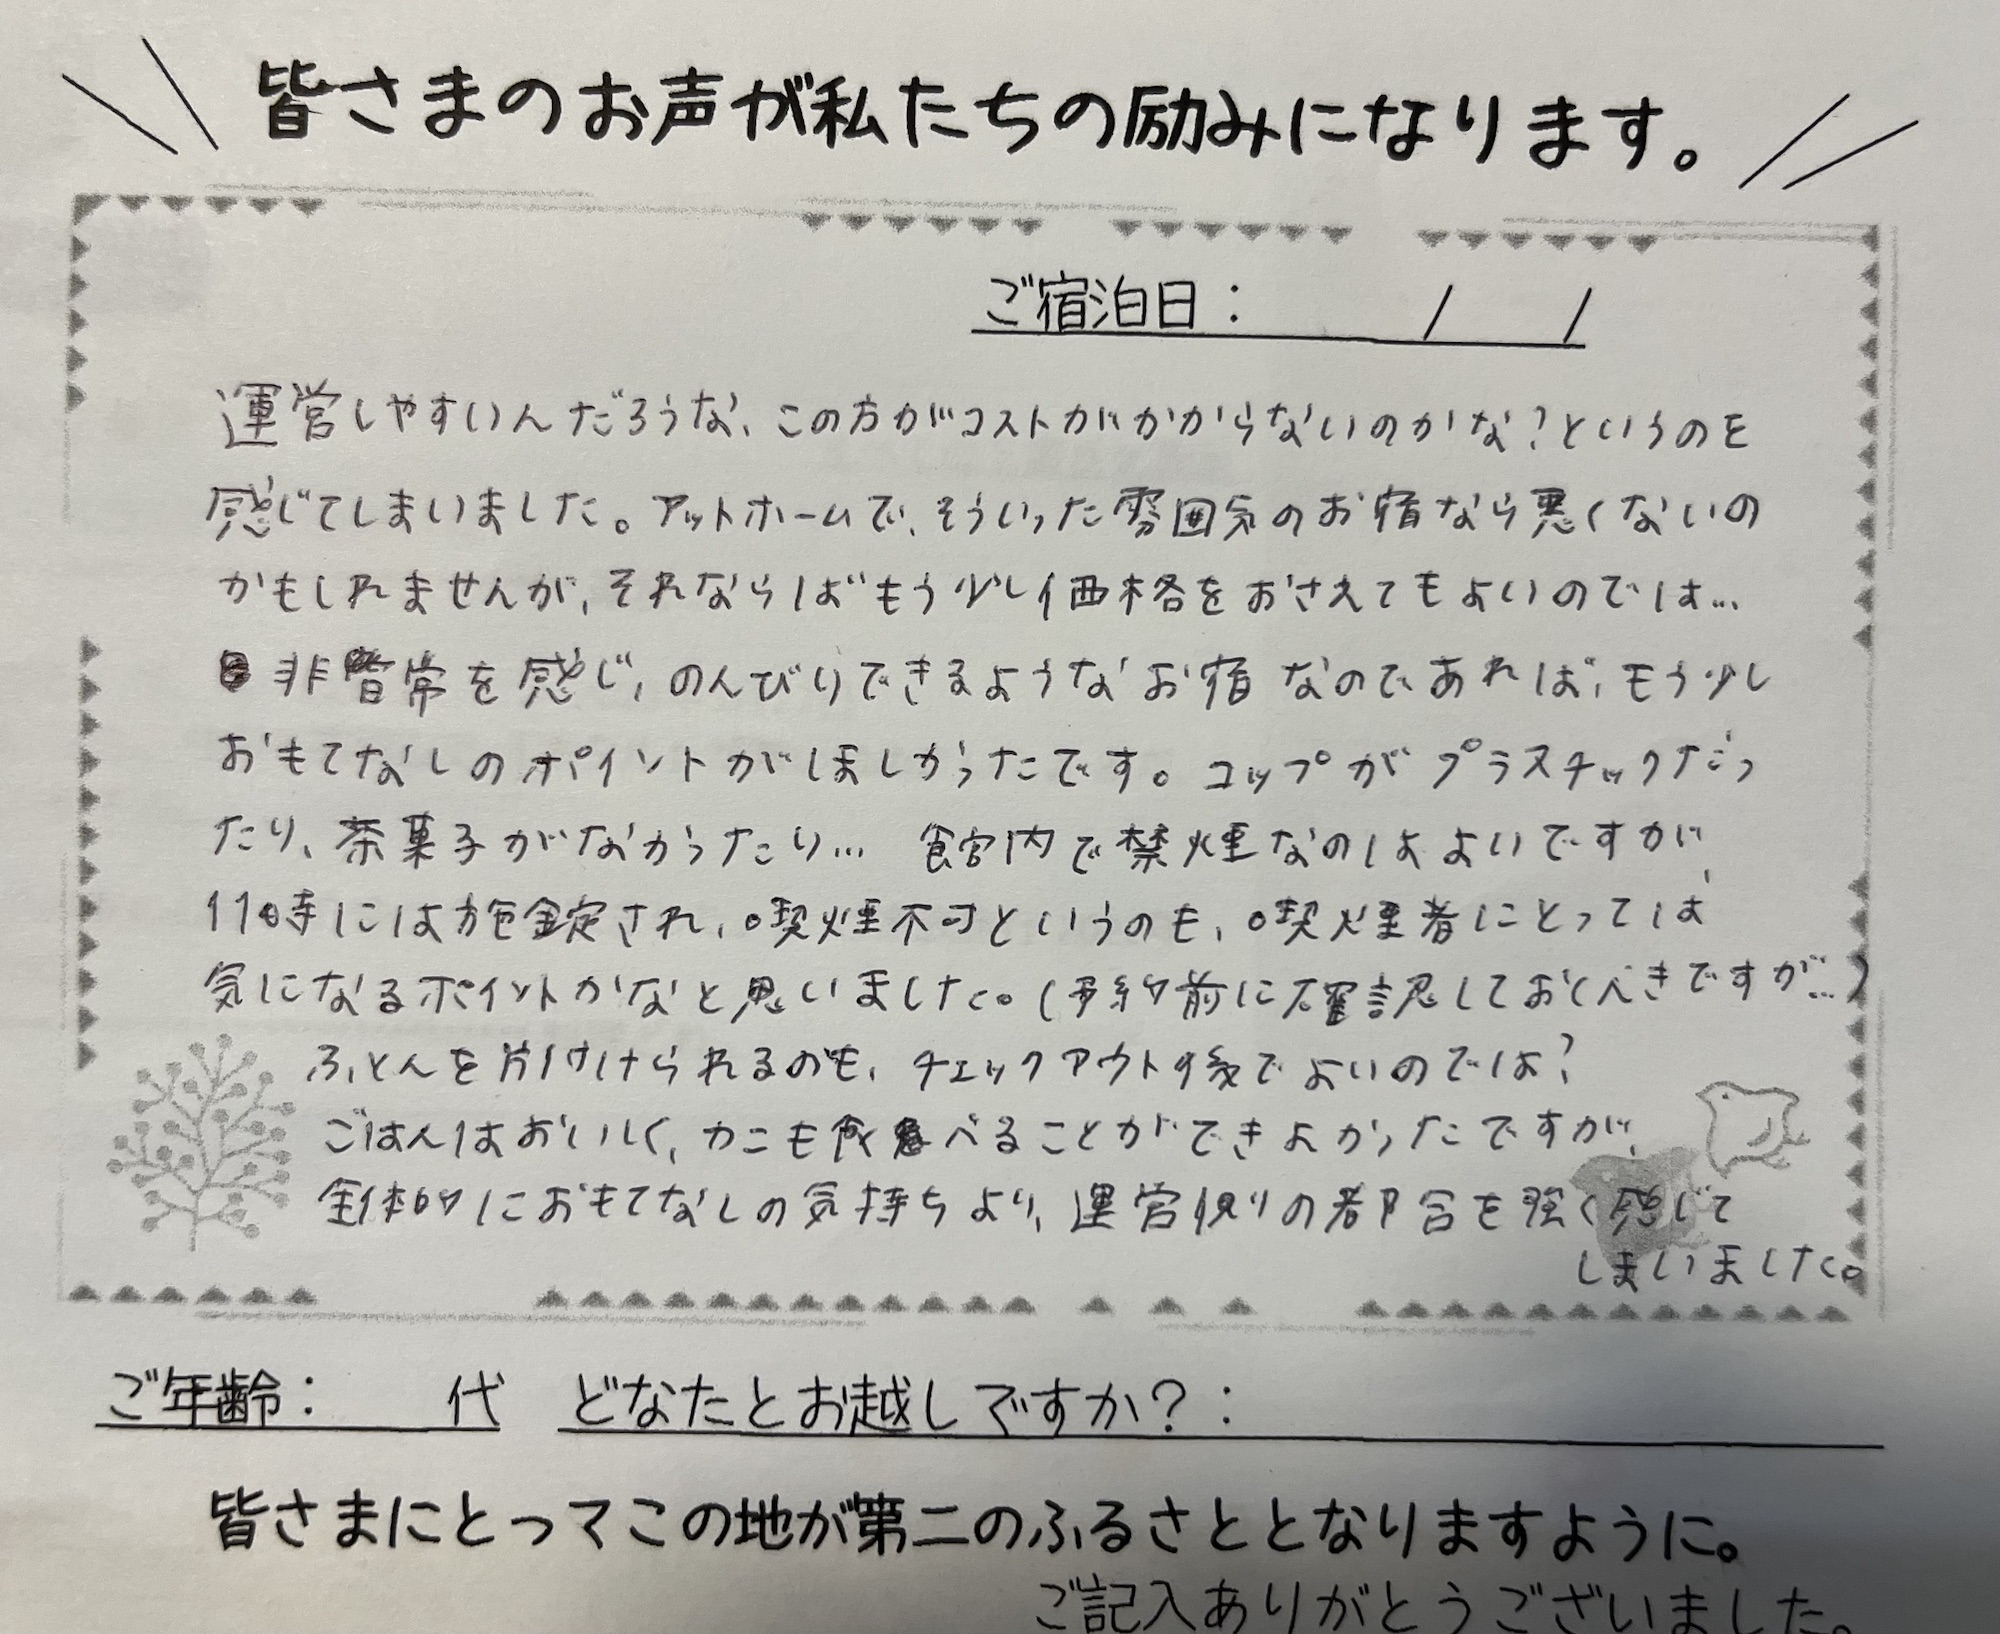 皆さまのお声が私たちの励みになります。
ご宿泊日: / /
運営しやすいんだろうな、この方がコストがかからないのかな?というのを
感じてしまいました。アットホームで、そういった雰囲気のお宿なら悪くないの
かもしれませんが、それならばもう少し価格をおさえてもよいのでは…
非常を感じ、のんびりできるようなお宿なのであれば、もう少し
おもてなしのポイントがほしかったです。コップがプラスチックだっ
たり、茶菓子がなかったり… 館内で禁煙なのはよいですが、
11時には施錠され、喫煙不可というのも、喫煙者にとっては
気になるポイントかなと思いました。(予約前に確認しておくべきですが…)
ふとんを片付けられるのも、チェックアウト後でよいのでは?
ごはんはおいしく、カニも食べることができよかったですが、
全体的におもてなしの気持ちより、運営側の都合を強く感じて
しまいました。
ご年齢: 代 どなたとお越しですか?:
皆さまにとってこの地が第二のふるさととなりますように。
ご記入ありがとうございました。